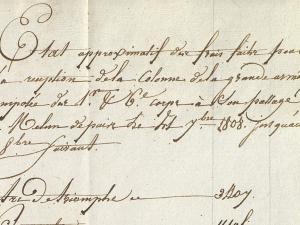 Etat approximatif des frais faits pour
la réception de la Colonne de la grande armée
composée des 1er & 6e corps à Son passage
à Melun depuis le 7bre 1808 jusqu'au
8bre Suivant.
arc de triomphe 340